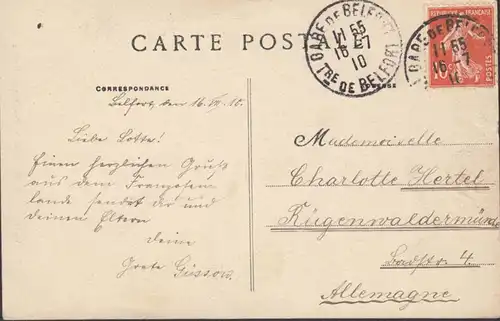 CARTE POSTALE
GARE DE BELFORT
11 55
16 - 7
10
TRE DE BELFORT
GARE DE BELFORT
11 55
16 - 7
REPUBLIQUE FRANÇAISE
10
POSTES
CORRESPONDANCE
Belfort, den 16. VII. 10.
Liebe Lotte!
Einen herzlichen Gruß
aus dem Franzosen-
lande sendet dir und
deinen Eltern
deine
Grete Güssow.
Mademoiselle
Charlotte Hertel
Rügenwaldermünde
Badstr. 4.
Allemagne